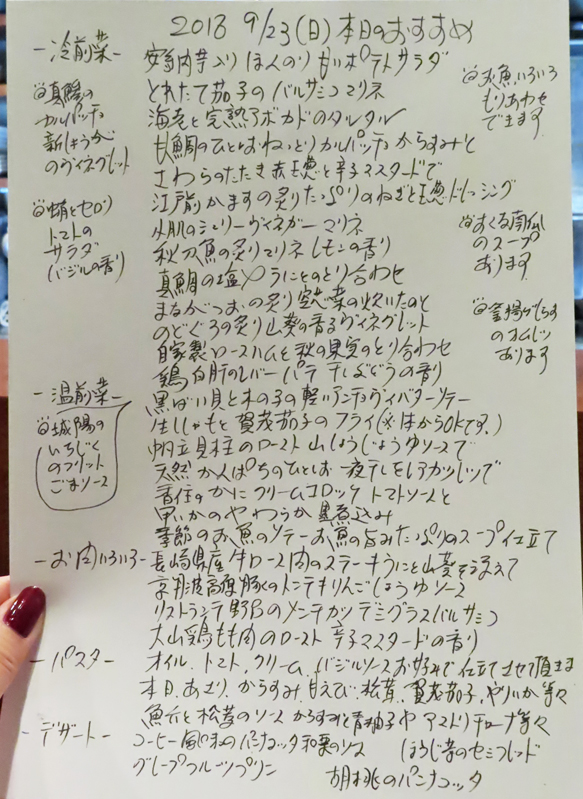 2018 9/23(日)本日のおすすめ
-冷前菜-
安納芋入り ほんのり甘いポテトサラダ
とれたて茄子のバルサミコマリネ
海老と完熟アボカドのタルタル
甘鯛のひとしおねっとりカルパッチョ からすみと
さわらのたたき 赤玉葱と辛子マスタードで
江戸前かますの炙り たっぷりのねぎと玉葱ドレッシング
〆鯖のシェリーヴィネガーマリネ
秋刀魚の炙りマリネ レモンの香り
真鯛の塩〆 うにとのとり合わせ
まるがつおの炙り 空芯菜の炊いたのと
のどぐろの炙り 山葵の香るヴィネグレット
自家製ロースハムと秋の果実のとり合わせ
鶏白肝のレバーパテ 干しぶどうの香り
真鯛の
カルパッチョ
新しょうが
のヴィネグレット
蛸とセロリ
トマトの
サラダ
バジルの香り
お魚いろいろ
もりあわせ
できます
すくる南仏
のスープ
あります
釜揚げしらす
のオムレツ
あります
-温前菜-
黒ばい貝と木の子の軽いアンチョヴィバターソテー
生ししゃもと賀茂茄子のフライ(※1本からOKです。)
帆立貝柱のロースト 山しょうじょうゆソースで
天然かんぱちのひとしお一夜干しをレアカツレツで
香住のかにクリームコロッケ トマトソースと
甲いかのやわらか墨煮込み
季節のお魚のソテー お魚の旨みたっぷりのスープ仕立て
城陽の
いちじく
のフリット
ごまソース
-お肉いろいろ-
長崎県産牛ロース肉のステーキ うにと山葵を添えて
京丹波高原豚のトンテキ りんごしょうゆソース
リストランテ野呂のメンチカツ デミグラスバルサミコ
大山鶏もも肉のロースト 辛子マスタードの香り
-パスタ-
オイル、トマト、クリーム、バジルソース お好みで仕立てさせて頂きます
本日、あさり、からすみ、甘えび、松茸、賀茂茄子、やりいか等々
魚介と松茸のソース からすみと青柚子や アマトリチャーナ等々
-デザート-
コーヒー風味のパンナコッタ 和栗のソース
ほうじ茶のセミフレッド
グレープフルーツプリン
胡桃のパンナコッタ